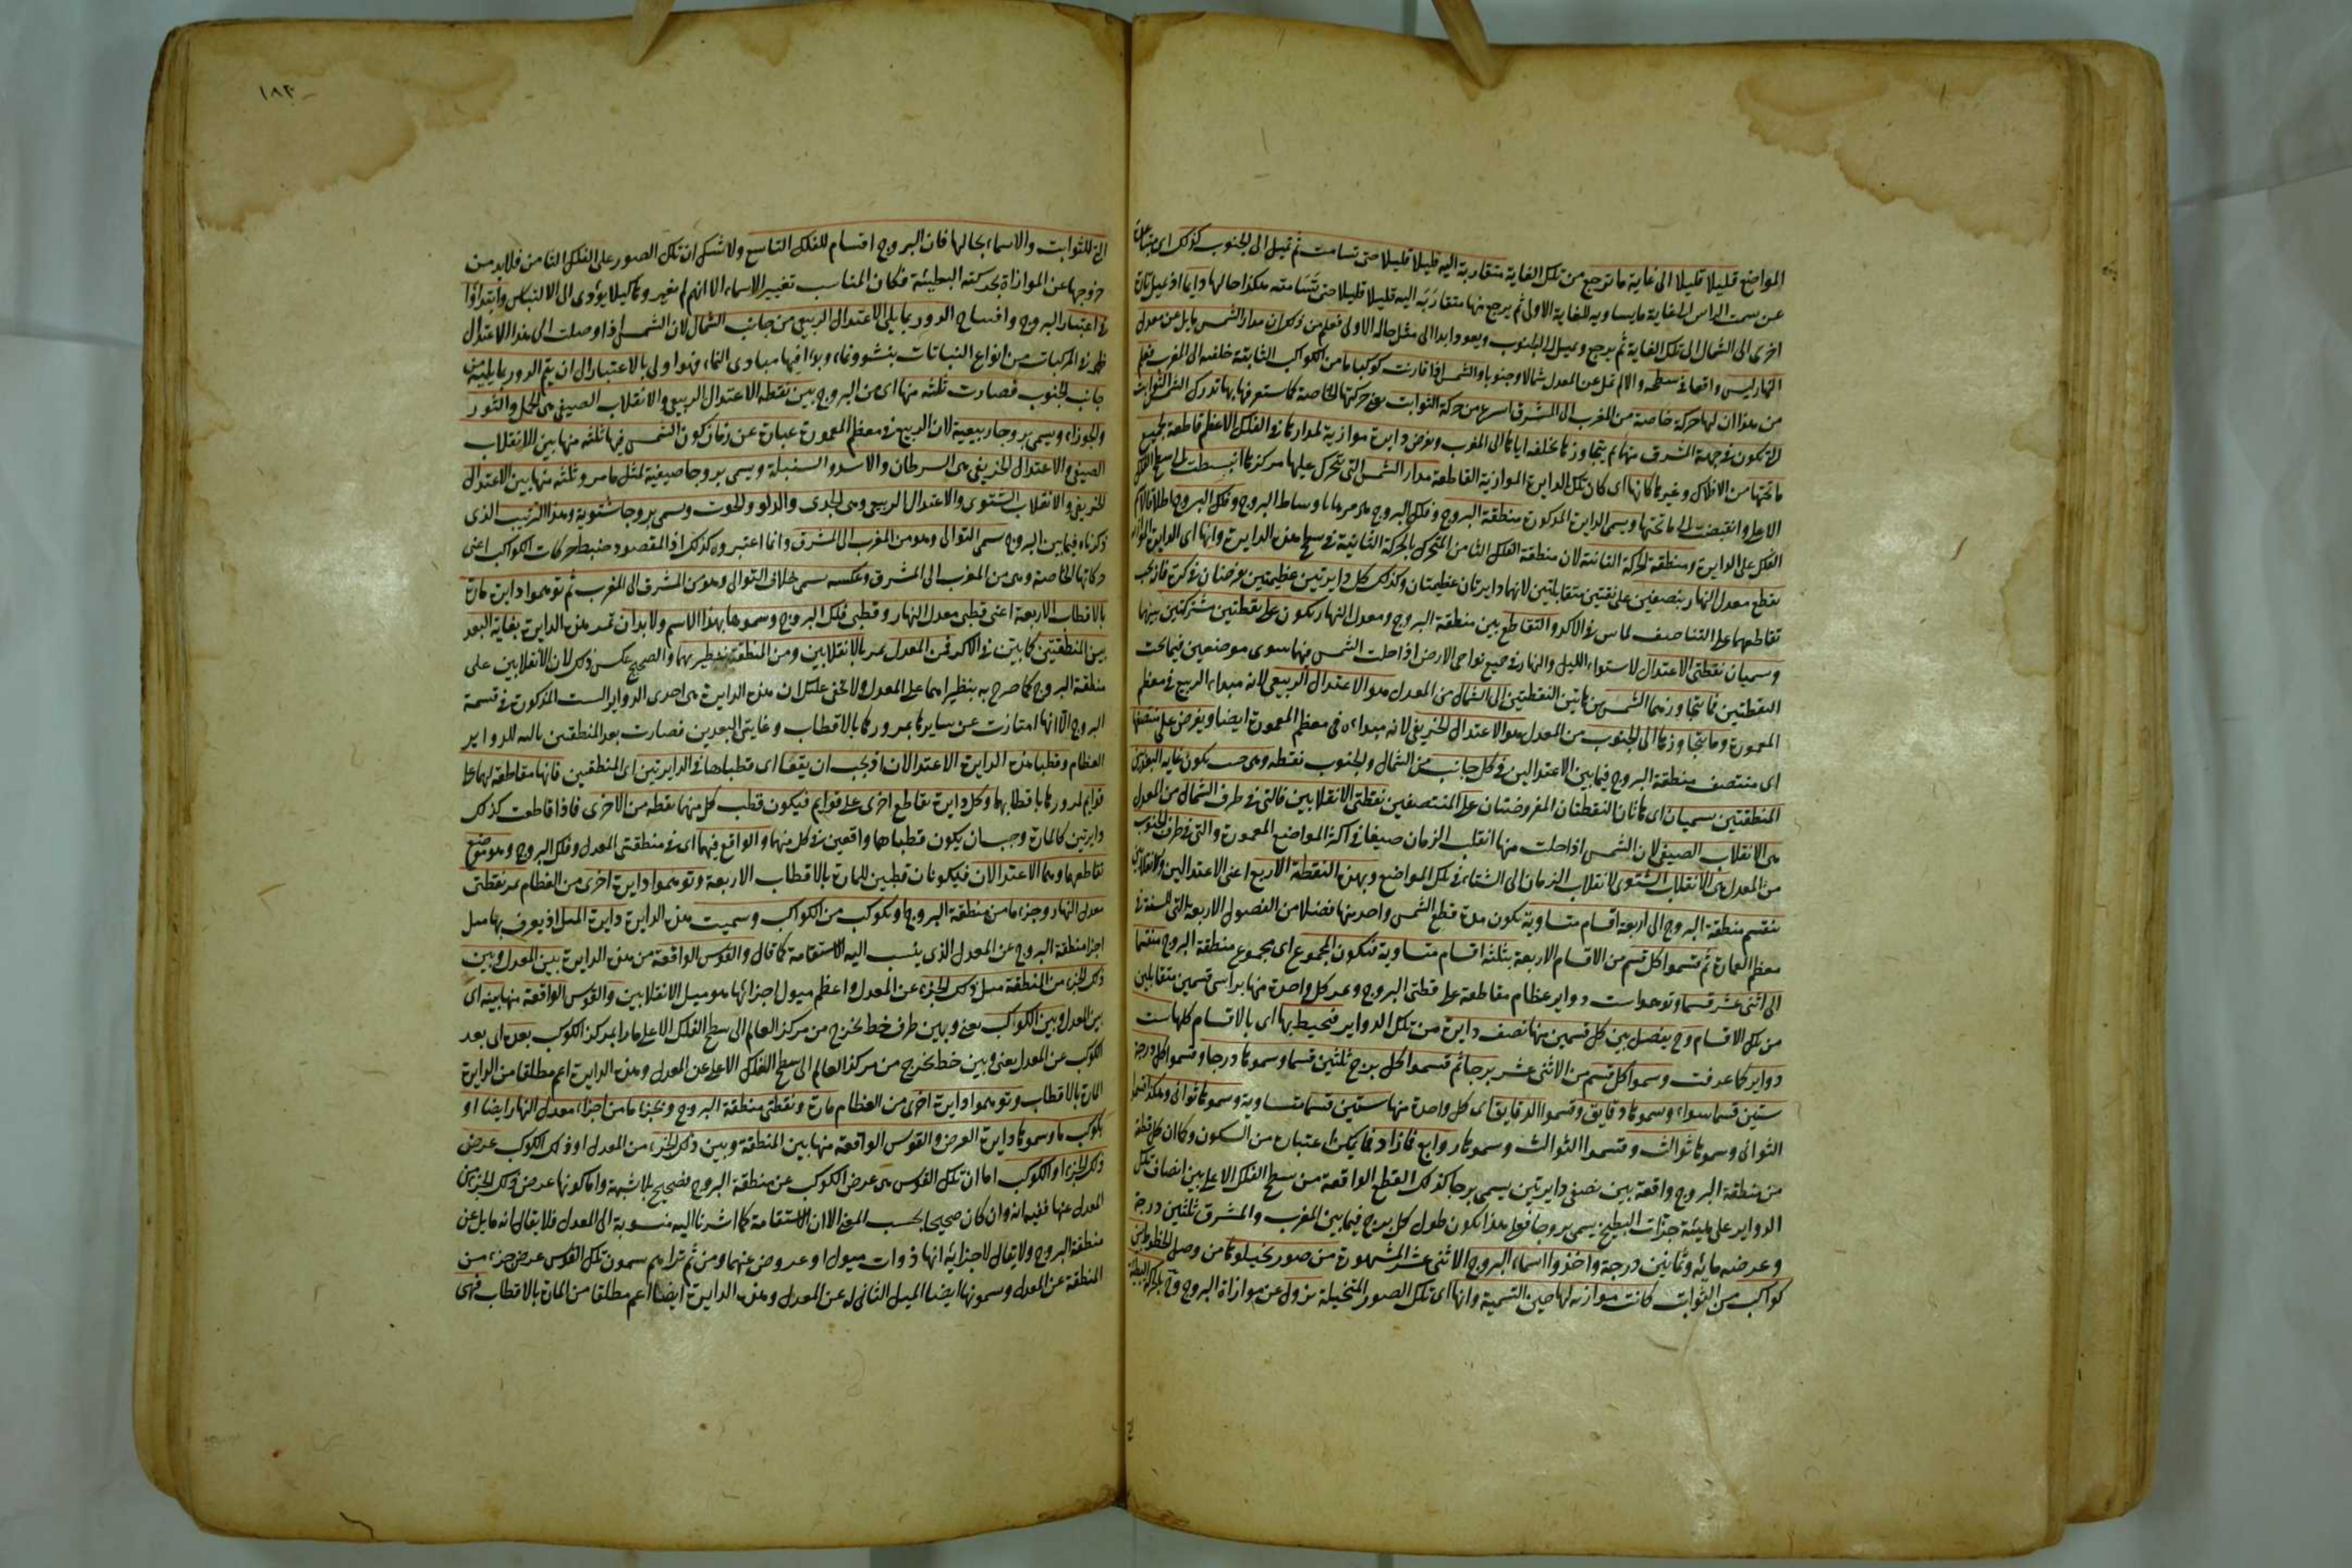 المواضع قليلا قليلا الى غاية ما ترجع من تلك الغاية متقاربة اليه قليلا قليلا حتى تسامت ثم تميل الى الجنوب كذلك اى متباعدة
عن سمت الراس الى غاية ما يساويه للغاية الاولى ثم يرجع منها متقاربة اليه قليلا قليلا حتى تسامته هكذا حالها دايما اذ تميل تارة
اخرى الى الشمال الى تلك الغاية ثم يرجع وتميل الى الجنوب ويعود ابدا الى مثل حاله الاولى فعلم من ذلك ان مدار الشمس مايل عن معدل
النهار ليس واقعا فى سطحه والا لم تمل عن المعدل شمالا وجنوبا والشمس اذا قارنت كوكبا ما من الكواكب الثابتة خلفه الى المغرب فعلم
من هذا ان لها حركة خاصة من المغرب الى المشرق اسرع من حركة الثوابت بحركتها الخاصة كما ستعرفها بها تدرك الشمس الثوابت
التى تكون فى جهة المشرق منها ثم يتجاوزها مخلفه اياها الى المغرب ونفرض دايرة موازية لمدارها فى الفلك الاعظم قاطعة لجميع
ما تحتها من الافلاك وغيرها كانها اى كان تلك الدايرة الموازية القاطعة مدار الشمس التى تتحرك عليها مركزها انبسطت الى سطح الفلك
الاعلى وانقبضت الى ما تحتها ويسمى الدايرة المذكورة منطقة البروج وفلك البروج لمرورها باوساط البروج وفلك البروج اطلاقا لاسم
الفلك على الدايرة ومنطقة الحركة الثانية لان منطقة الفلك الثامن المتحرك بالحركة الثانية فى سطح هذه الدايرة وانها اى الدايرة المذكورة
تقطع معدل النهار بنصفين على نقطتين متقابلتين لانهما دايرتان عظيمتان وكذلك كل دايرتين عظيمتين عرضتان فى كرة فانه يجب
تقاطعهما على التناصف لما مر فى الاكر والتقاطع بين منطقة البروج ومعدل النهار يكون على نقطتين مشتركتين بينهما
وسميان نقطتى الاعتدال لاستواء الليل والنهار فى جميع نواحى الارض اذا حلت الشمس فيهما سوى موضعين فيما تحت
القطبين فما تتجاوزها الشمس من هاتين النقطتين الى الشمال من المعدل هو الاعتدال الربيعى لانه مبداء الربيع فى معظم
المعمورة وما يتجاوزها الى الجنوب من المعدل هو الاعتدال الخريفى لانه مبداءه فى معظم المعمورة ايضا ويفرض على منتصفها
اى منتصف منطقة البروج فيما بين الاعتدالين فى كل جانب من الشمال والجنوب نقطة وهى حيث يكون غاية البعد بين
المنطقتين يسميان اى هاتان النقطتان المفروضتان على المنتصفين نقطتى الانقلابين فالتى فى طرف الشمال من المعدل
هى الانقلاب الصيفى لان الشمس اذا حلت منها انقلب الزمان صيفا فى اكثر المواضع المعمورة والتى فى طرف الجنوب
من المعدل هى الانقلاب الشتوى لانقلاب الزمان الى الشتاء فى تلك المواضع وبهذه النقطة الاربع اعنى الاعتدالين والانقلابين
تنقسم منطقة البروج الى اربعة اقسام متساوية يكون مدة قطع الشمس واحد منها فصلا من الفصول الاربعة التى للسنة فى
معظم العمارة ثم قسموا كل قسم من الاقسام الاربعة بثلثة اقسام متساوية فيكون المجموع اى مجموع منطقة البروج منقسما
الى اثنى عشر قسما وتوهموا ست دواير عظام مقاطعة على قطبى البروج ويمر كل واحدة منها براسى قسمين متقابلين
من تلك الاقسام وح يفصل بين كل قسمين منها نصف دايرة من تلك الدواير فتحيط بها اى بالاقسام كلها ست
دواير كما عرفت وسموا كل قسم من الاثنى عشر برجا ثم قسموا كل برج ثلثين قسما وسموها درجا وقسموا كل درجة
ستين قسما سواء وسموها دقايق وقسموا الدقايق اى كل واحدة منها ستين قسما متساوية وسموها ثوانى وهكذا قسموا
الثوانى وسموها ثوالث وقسموا الثوالث وسموها روابع فما زاد فما يمكن اعتباره من السكون وكما ان كل قطعة
من منطقة البروج واقعة بين نصفى دايرتين يسمى برجا كذلك القطع الواقعة من سطح الفلك الاعلى بين انصاف تلك
الدواير على هيئة جزات البطيخ يسمى بروجا فعلى هذا يكون طول كل برج فيما بين المغرب والمشرق ثلثين درجة
وعرضه مائه وثمانين درجة واخذوا اسماء البروج الاثنى عشر المشهورة من صور تخيلوها من وصل الخطوط بين
كواكب من الثوابت كانت موازنه لها حين التسمية وانها اى تلك الصور المتخيلة تزول عن موازاة البروج وح بالحركة البطيئة
١٨٣
التى للثوابت والاسماء بحالها فان البروج اقسام للفلك التاسع ولا شك ان تلك الصور على الفلك الثامن فلا بد من
خروجها عن الموازاة بحركته البطيئة فكان المناسب تغيير الاسماء الا انهم لم يغيروها كيلا يؤدى الى الالتباس وابتداؤا
فى اعتبار البروج وافتتاح الدور بما يلى الاعتدال الربيعى من جانب الشمال لان الشمس اذا وصلت الى هذا الاعتدال
ظهر فى المركبات من انواع النباتات نشوونما، وبدا فيها مبادى النما، فهو اولى بالاعتبار الى ان يتم الدور بما يليه من
جانب الجنوب فصارت ثلثه منها اى من البروج بين نقطه الاعتدال الربيعى والانقلاب الصيفى هى الحمل والثور
والجوزاء ويسمى بروجا ربيعية لان الربيع فى معظم المعمورة عبارة عن زمان كون الشمس فيها ثلثه منها بين الانقلاب
الصيفى والاعتدال الخريفى هى السرطان والاسد والسنبلة ويسمى بروجا صيفية لمثل ما مر وثلثه منها بين الاعتدال
الخريفى والانقلاب الشتوى والاعتدال الربيعى وهى الجدى والدلو والحوت ويسمى بروجا شتوية وهذا الترتيب الذى
ذكرناه فيما بين البروج سمى التوالى وهو من المغرب الى المشرق وانما اعتبروه كذلك اذ المقصود ضبط حركات الكواكب اعنى
حركاتها الخاصة وهى من المغرب الى المشرق وعكسه يسمى خلاف التوالى وهو من المشرق الى المغرب ثم توهموا دايرة مارة
بالاقطاب الاربعة اعنى قطبى معدل النهار وقطبى فلك البروج وسموها بهذا الاسم ولا بد ان تمر هذه الدايرة بغاية البعد
بين المنطقتين كما بين فى الاكر فمن المعدل يمر بالانقلابين ومن المنطقة بنظيريهما والصحيح عكس ذلك لان الانقلابين على
منطقة البروج كما صرح به بنظيراهما على المعدل ولا يخفى عليك ان هذه الدايرة هى احدى الدواير الست المذكورة فى قسمة
البروج الا انها امتازت عن سايرها بمرورها بالاقطاب وغايتى البعدين فصارت بعد المنطقتين بالثه للدواير
العظام وقطبا هذه الدايرة الاعتدالان اذ يجب ان يقعا اى قطباها فى الدايرتين اى المنطقتين فانها مقاطعة لهما على
قوايم لمرورها باقطابهما وكل دايرة تقاطع اخرى على قوايم فيكون قطب كل منهما نقطه من الاخرى فاذا قاطعت كذلك
دايرتين كالمارة وجب ان يكون قطباها واقعين فى كل منهما والواقع فيهما اى فى منطقتى المعدل وفلك البروج وهو موضع
تقاطعهما وهما الاعتدالان فيكونان قطبين للمارة بالاقطاب الاربعة وتوهموا دايرة اخرى من العظام تمر بقطبى
معدل النهار وجزء ما من منطقة البروج او بكوكب من الكواكب وسميت هذه الدايرة دايرة الميل اذ يعرف بها ميل
اجزا منطقة البروج عن المعدل الذى ينسب اليه الاستقامة كما قال والقوس الواقعة من هذه الدايرة بين المعدل وبين
ذلك الجزء من المنطقة ميل ذلك الجزء عن المعدل واعظم ميول اجزائها هو ميل الانقلابين والقوس الواقعة منها بينه اى
بين المعدل وبين الكوكب يعنى وبين طرف خط يخرج من مركز العالم الى سطح الفلك الاعلى مارا بمركز الكوكب بعده اى بعد
الكوكب عن المعدل يعنى وبين خط يخرج من مركز العالم الى سطح الفلك الاعلى عن المعدل وهذه الدايرة اعم مطلقا من الدايرة
المارة بالاقطاب وتوهموا دايرة اخرى من العظام مارة بنقطتى منطقة البروج وبجزء ما من اجزاء معدل النهار ايضا او
بكوكب ما وسموها دايرة العرض والقوس الواقعة منها بين المنطقة وبين ذلك الجزء من المعدل او ذلك الكوكب عرض
ذلك الجزء او الكوكب اما ان تلك القوس هى عرض الكوكب عن منطقة البروج فصحيح بلا شبهة واما كونها عرض ذلك الجزء من
المعدل عنها ففيه انه وان كان صحيحا بحسب المعنى الا ان الاستقامة كما اشرنا اليه منسوبة الى المعدل فلا يقال انه مايل عن
منطقة البروج ولا يقال لاجزائه انها ذوات ميول او عروض عنها ومن ثم تراهم يسمون تلك القوس عرض جزء من
المنطقة عن المعدل وسمونها ايضا الميل الثانى له عن المعدل وهذه الدايرة ايضا اعم مطلقا من المارة بالاقطاب فهى